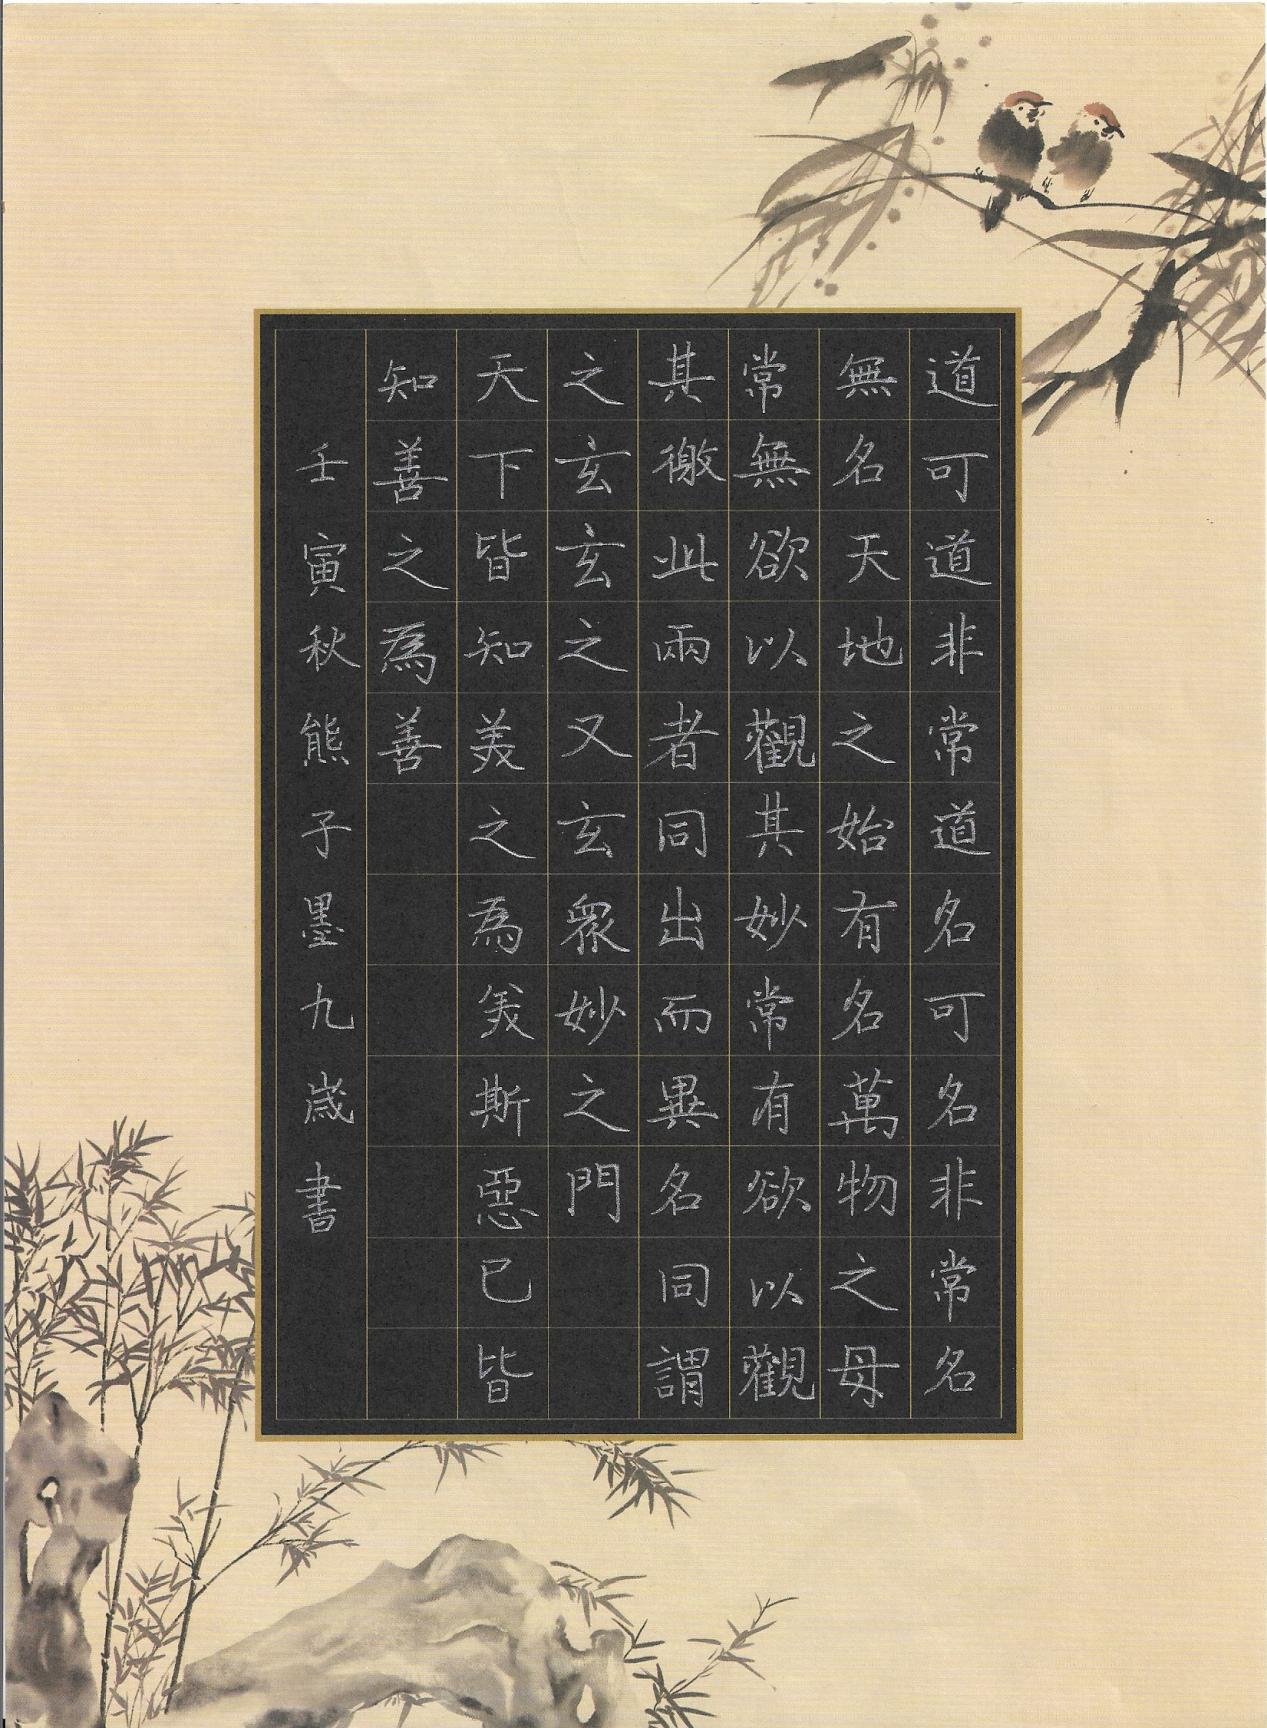 道可道非常道名可名非常名
無名天地之始有名萬物之母
常無欲以觀其妙常有欲以觀
其徼此兩者同出而異名同謂
之玄玄之又玄衆妙之門
天下皆知美之為美斯惡已皆
知善之為善
壬寅秋熊子墨九歲書